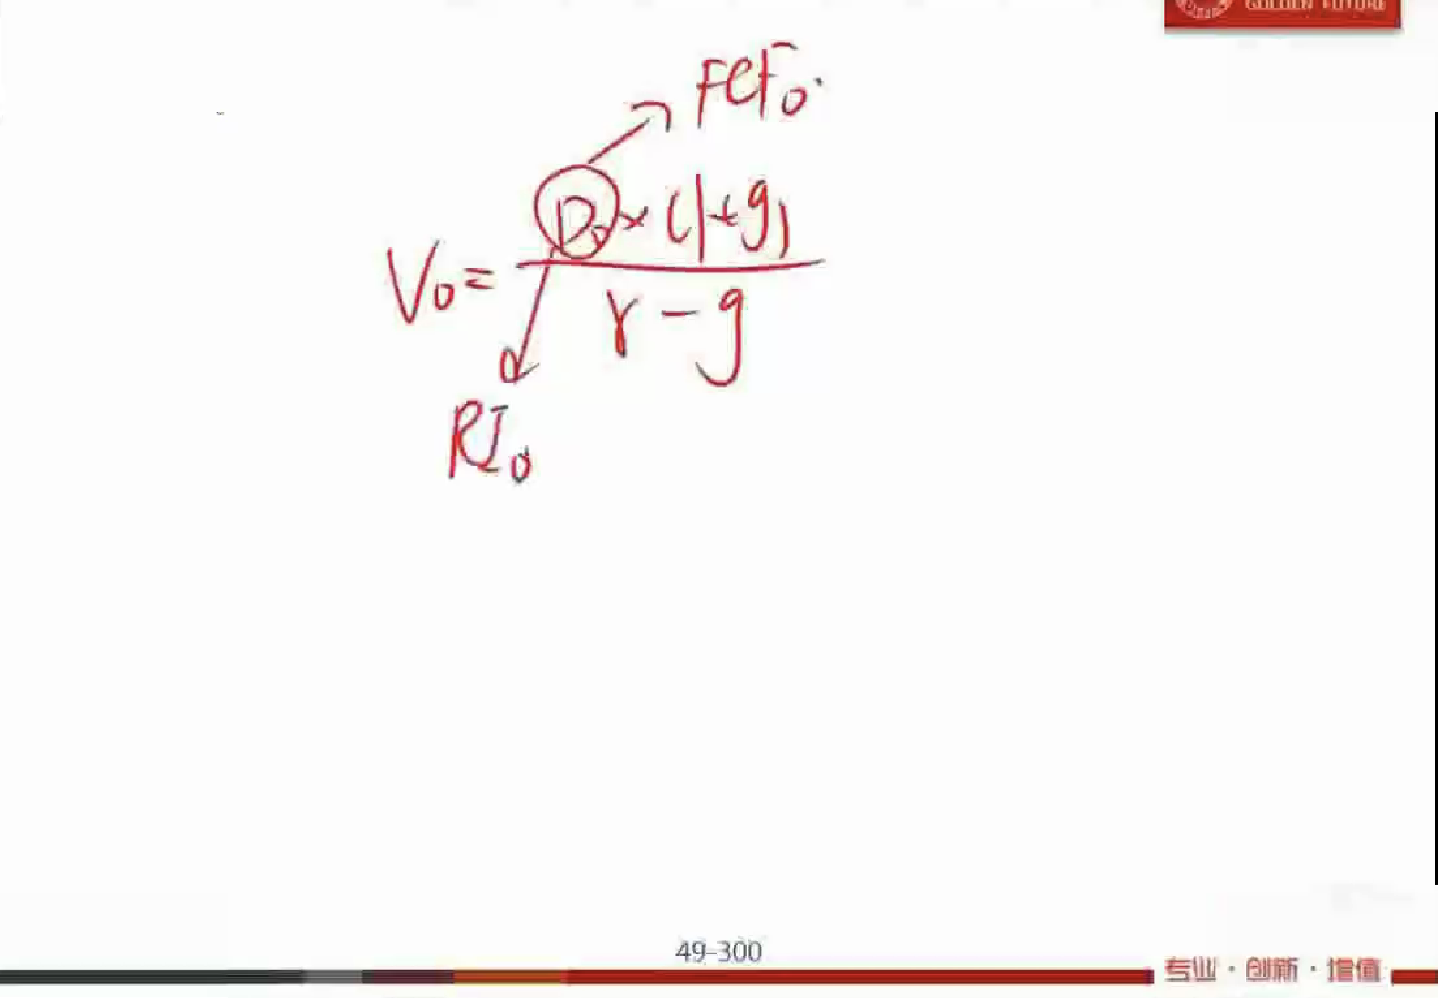 GOLDEN FUTURE
FCF₀
D₀ × (1+g)
V₀ =
r − g
RI₀
49-300
专业·创新·增值